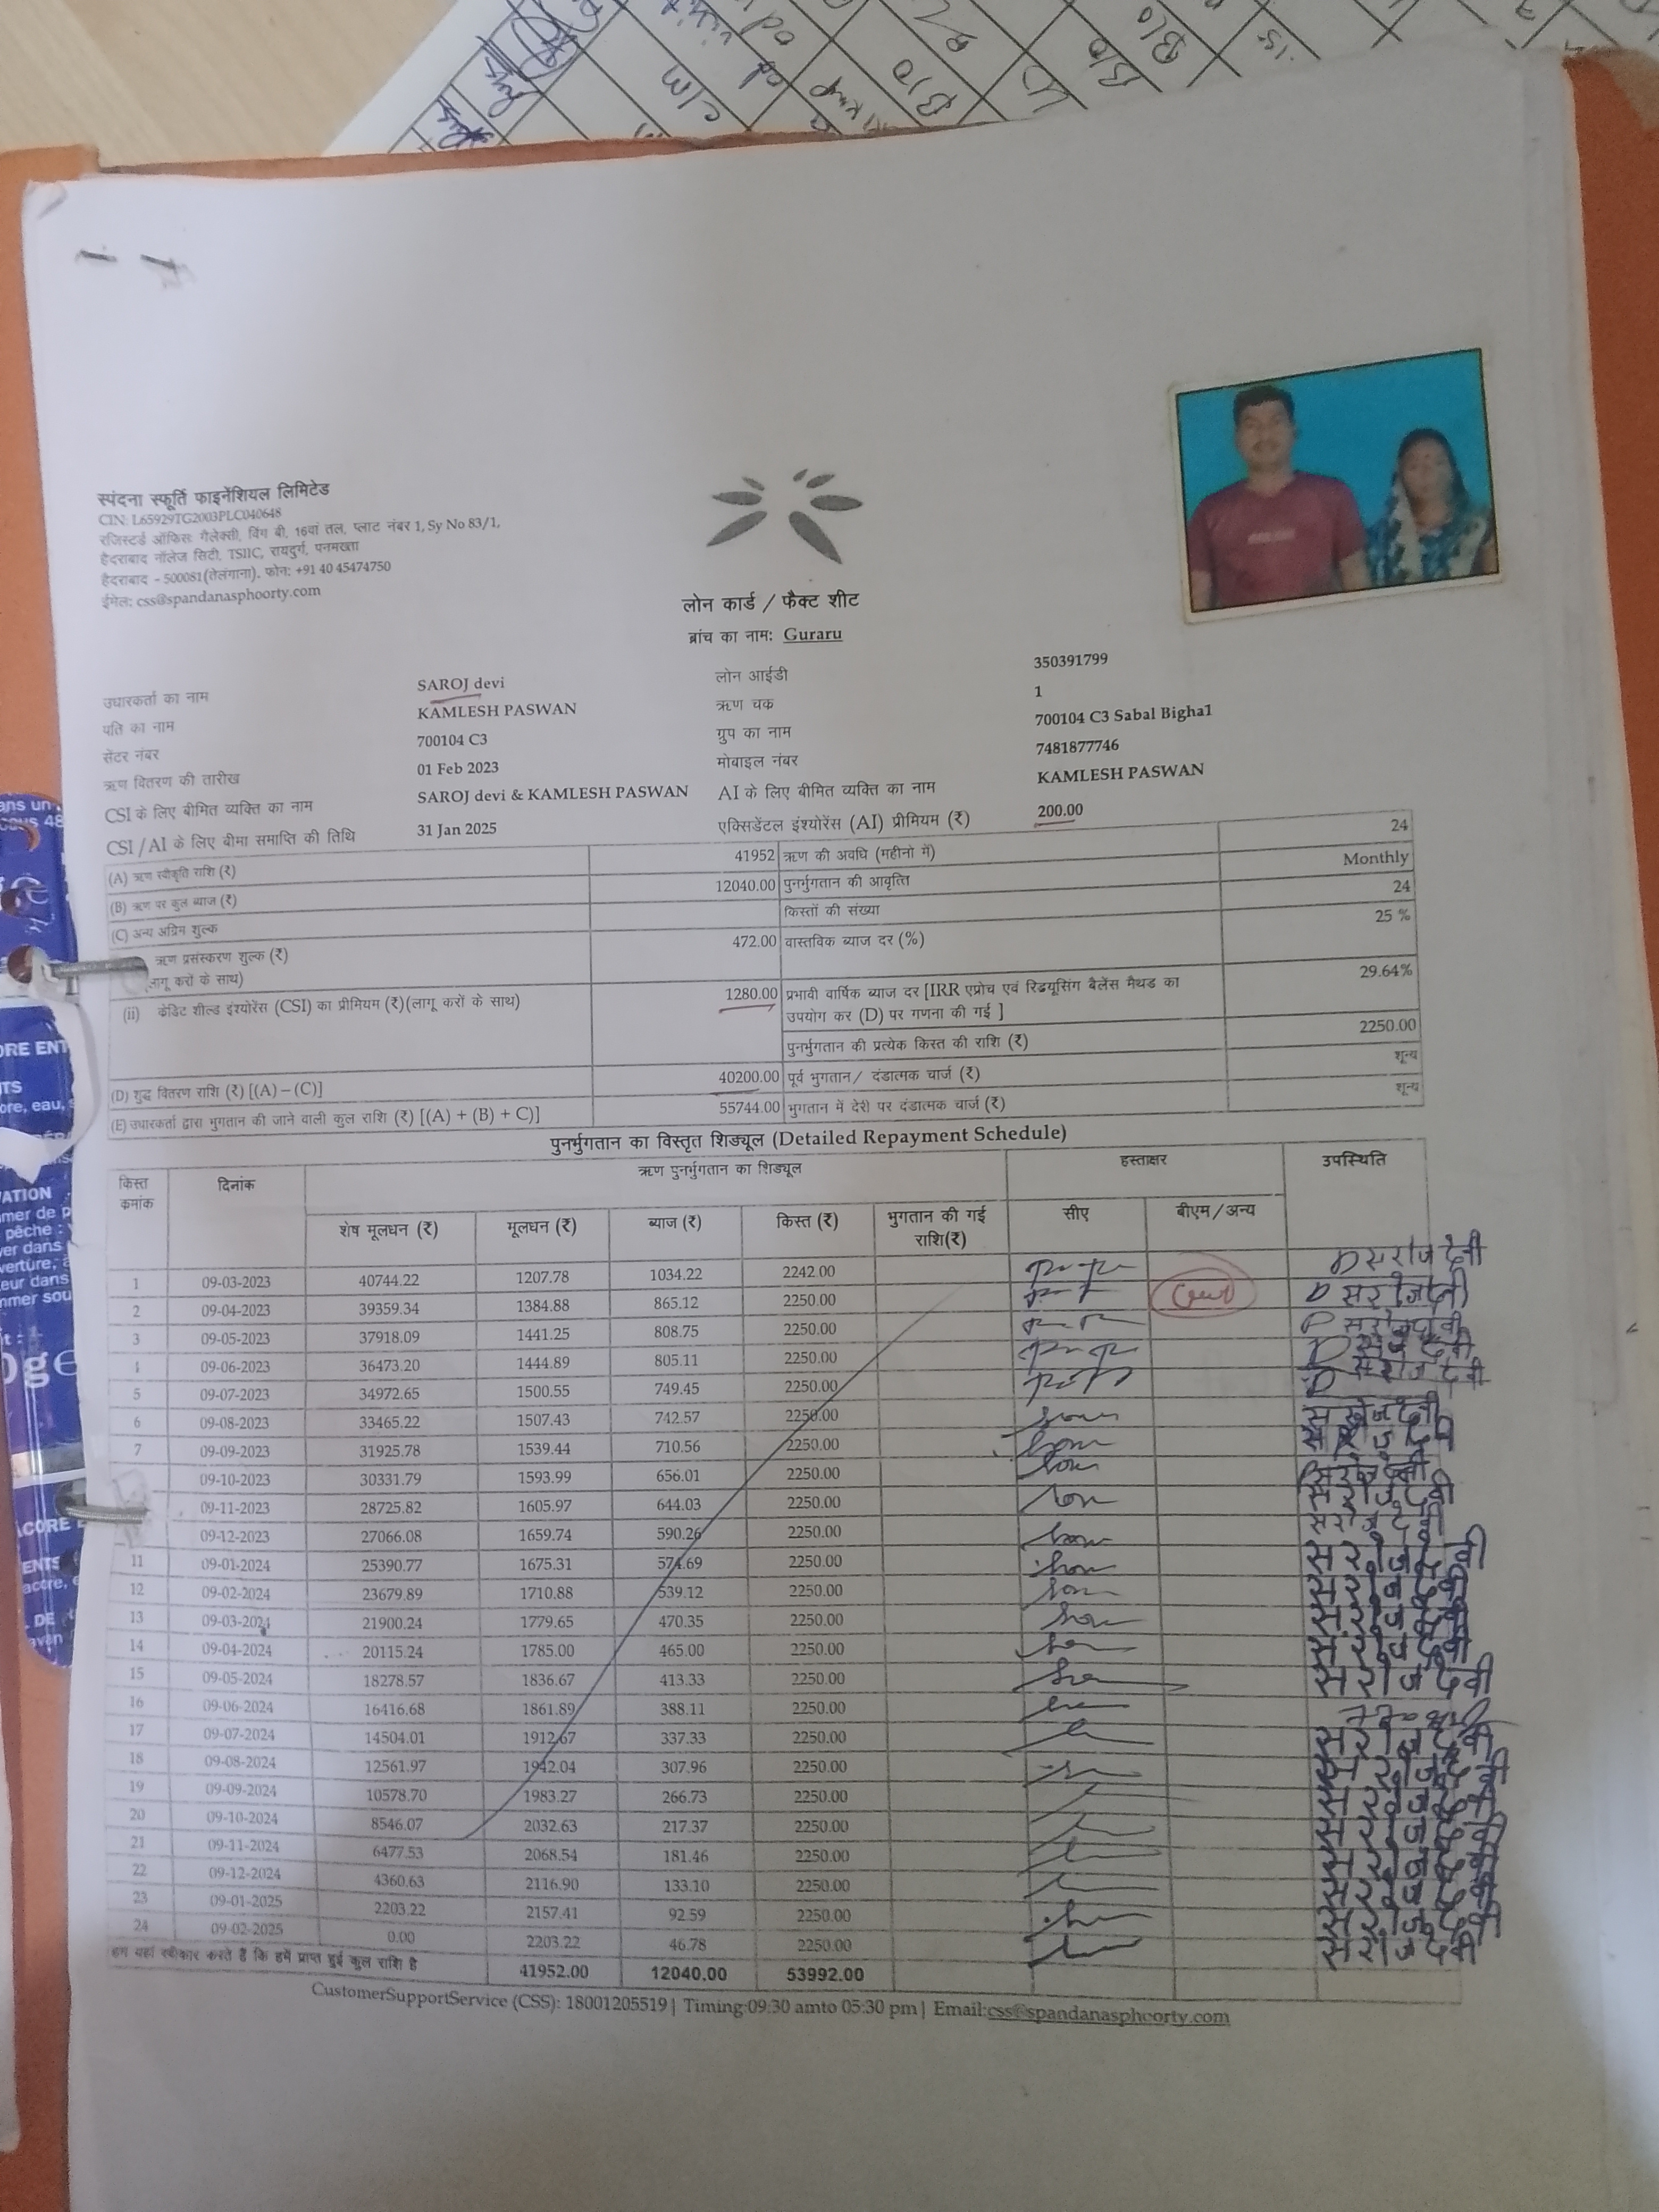 स्पंदना स्फूर्ति फाइनेंशियल लिमिटेड
CIN: L65929TG2003PLC040648
रजिस्टर्ड ऑफिसः गैलेक्सी, विंग बी, 16वां तल, प्लाट नंबर 1, Sy No 83/1,
हैदराबाद नॉलेज सिटी, TSIIC, रायदुर्ग, पनमख्ता
हैदराबाद - 500081(तेलंगाना). फोन: +91 40 45474750
ईमेल: css@spandanasphoorty.com
लोन कार्ड / फैक्ट शीट
ब्रांच का नाम: Guraru
उधारकर्ता का नाम SAROJ devi लोन आईडी 350391799
पति का नाम KAMLESH PASWAN ऋण चक्र 1
सेंटर नंबर 700104 C3 ग्रुप का नाम 700104 C3 Sabal Bigha1
ऋण वितरण की तारीख 01 Feb 2023 मोबाइल नंबर 7481877746
CSI के लिए बीमित व्यक्ति का नाम SAROJ devi & KAMLESH PASWAN AI के लिए बीमित व्यक्ति का नाम KAMLESH PASWAN
CSI/AI के लिए बीमा समाप्ति की तिथि 31 Jan 2025 एक्सिडेंटल इंश्योरेंस (AI) प्रीमियम (₹) 200.00
(A) ऋण स्वीकृति राशि (₹) 41952 ऋण की अवधि (महीनो में) 24
(B) ऋण पर कुल ब्याज (₹) 12040.00 पुनर्भुगतान की आवृत्ति Monthly
(C) अन्य अग्रिम शुल्क किस्तों की संख्या 24
ऋण प्रसंस्करण शुल्क (₹) 472.00 वास्तविक ब्याज दर (%) 25 %
लागू करों के साथ)
(ii) क्रेडिट शील्ड इंश्योरेंस (CSI) का प्रीमियम (₹)(लागू करों के साथ) 1280.00 प्रभावी वार्षिक ब्याज दर [IRR एप्रोच एवं रिडयूसिंग बैलेंस मैथड का 29.64%
उपयोग कर (D) पर गणना की गई ]
पुनर्भुगतान की प्रत्येक किस्त की राशि (₹) 2250.00
(D) शुद्ध वितरण राशि (₹) [(A) – (C)] 40200.00 पूर्व भुगतान/ दंडात्मक चार्ज (₹) शून्य
(E) उधारकर्ता द्वारा भुगतान की जाने वाली कुल राशि (₹) [(A) + (B) + C)] 55744.00 भुगतान में देरी पर दंडात्मक चार्ज (₹) शून्य
पुनर्भुगतान का विस्तृत शिड्यूल (Detailed Repayment Schedule)
किस्त क्रमांक दिनांक ऋण पुनर्भुगतान का शिड्यूल हस्ताक्षर उपस्थिति
शेष मूलधन (₹) मूलधन (₹) ब्याज (₹) किस्त (₹) भुगतान की गई राशि(₹) सीए बीएम/अन्य
1 09-03-2023 40744.22 1207.78 1034.22 2242.00 सरोज देवी
2 09-04-2023 39359.34 1384.88 865.12 2250.00 सरोज देवी
3 09-05-2023 37918.09 1441.25 808.75 2250.00
09-06-2023 36473.20 1444.89 805.11 2250.00
5 09-07-2023 34972.65 1500.55 749.45 2250.00 सरोज देवी
6 09-08-2023 33465.22 1507.43 742.57 2250.00 सरोज देवी
7 09-09-2023 31925.78 1539.44 710.56 2250.00 सरोज देवी
09-10-2023 30331.79 1593.99 656.01 2250.00 सरोज देवी
09-11-2023 28725.82 1605.97 644.03 2250.00 सरोज देवी
09-12-2023 27066.08 1659.74 590.26 2250.00 सरोज देवी
11 09-01-2024 25390.77 1675.31 574.69 2250.00 सरोज देवी
12 09-02-2024 23679.89 1710.88 539.12 2250.00 सरोज देवी
13 09-03-2024 21900.24 1779.65 470.35 2250.00 सरोज देवी
14 09-04-2024 20115.24 1785.00 465.00 2250.00 सरोज देवी
15 09-05-2024 18278.57 1836.67 413.33 2250.00 सरोज देवी
16 09-06-2024 16416.68 1861.89 388.11 2250.00
17 09-07-2024 14504.01 1912.67 337.33 2250.00 सरोज देवी
18 09-08-2024 12561.97 1942.04 307.96 2250.00 सरोज देवी
19 09-09-2024 10578.70 1983.27 266.73 2250.00 सरोज देवी
20 09-10-2024 8546.07 2032.63 217.37 2250.00 सरोज देवी
21 09-11-2024 6477.53 2068.54 181.46 2250.00 सरोज देवी
22 09-12-2024 4360.63 2116.90 133.10 2250.00 सरोज देवी
23 09-01-2025 2203.22 2157.41 92.59 2250.00 सरोज देवी
24 09-02-2025 0.00 2203.22 46.78 2250.00 सरोज देवी
हम यहां स्वीकार करते हैं कि हमें प्राप्त हुई कुल राशि है 41952.00 12040.00 53992.00
CustomerSupportService (CSS): 18001205519 | Timing:09:30 amto 05:30 pm | Email:css@spandanasphoorty.com